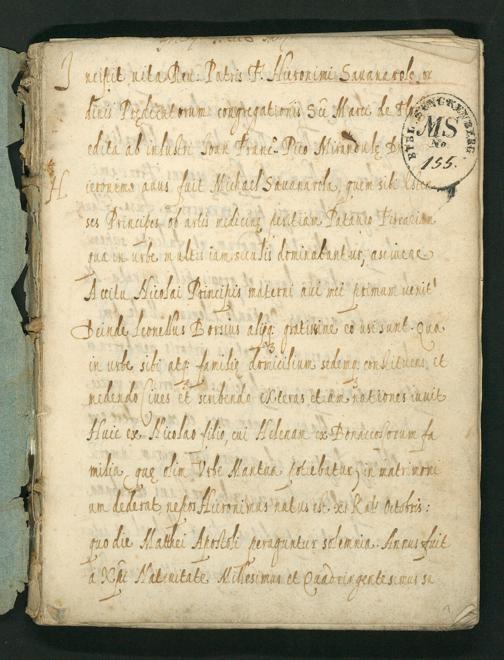 Incipit vita Reu. Patris F. Hieronimi Sauanarole or
dinis Predicatorum congregationis Sci Marci de
edita ab illustri Ioan Franc. Pico Mirandulę
BIBL. SENCKENBERG.
MS
No
155.
Hieronemo auus fuit Michael Sauanarola, quem sibi
ses Principes ob artis medicinę peritiam Patauio Ferrariam
qua in urbe multis iam seculis dominabantur, asciuere
Accitu Nicolai Principis materni aui mei primum uenit
deinde Leonellus Borsius aliiq; gratissime eo usi sunt. Qua
in urbe sibi atq; familię domicilium sedemq; constituens, et
medendo ciues et scribendo exteras etiam nationes iuuit
Huic ex Nicolao filio, cui Helenam ex Bonacossorum fa
milia, quę olim Vrbe Mantua potiebatur, in matrimoni
um dederat nepos Hieronimus natus est. xi Kal. Octobris:
quo die Matthei Apostoli peraguntur solemnia. Annus fuit
a Xpi Natiuitate Millesimus et Quadringentesimus su